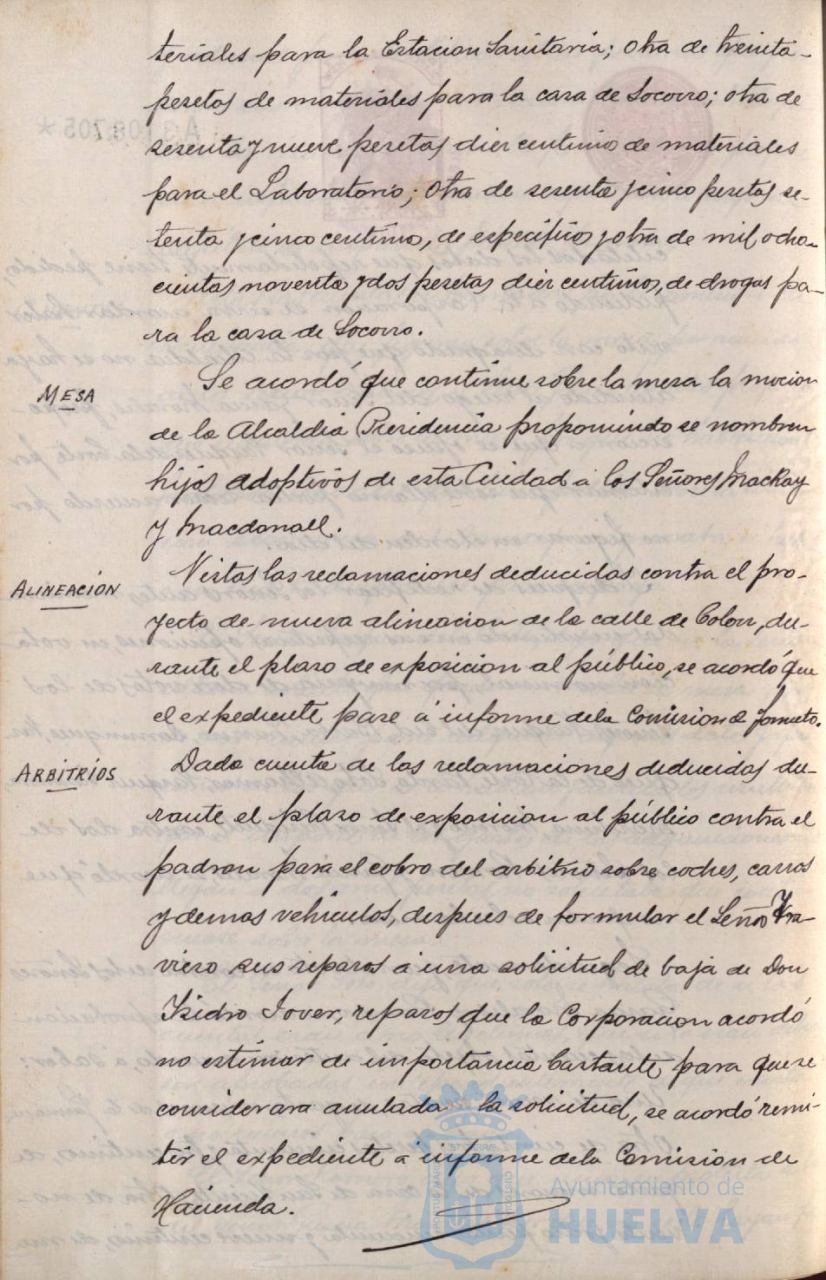 teriales para la Estacion Sanitaria; otra de treinta
pesetas de materiales para la casa de Socorro; otra de
sesenta y nueve pesetas diez centimo de materiales
para el Laboratorio; otra de sesenta y cinco pesetas se-
tenta y cinco centimo, de especificos y otra de mil ocho-
cientas noventa y dos pesetas diez centimos, de drogas pa-
ra la casa de Socorro.
MESA
Se acordó que continue sobre la mesa la mocion
de la Alcaldia Presidencia proponiendo se nombren
hijos adoptivos de esta Ciudad á los Señores Mackay
y Macdonall.
ALINEACIÓN
Vistas las reclamaciones deducidas contra el pro-
yecto de nueva alineacion de la calle de Colon, du-
rante el plazo de exposicion al público, se acordó que
el expediente pase á informe de la Comision de Fomento.
ARBITRIOS
Dada cuenta de las reclamaciones deducidas du-
rante el plazo de exposicion al público contra el
padron para el cobro del arbitrio sobre coches, carros
y demas vehiculos, despues de formular el Señor
viero sus reparos á una solicitud de baja de Don
Ysidro Jover, reparos que la Corporacion acordó
no estimar de importancia bastante para que se
considerara anulada la solicitud, se acordó remi-
tir el expediente á informe de la Comision de
Hacienda.
Ayuntamiento de
HUELVA